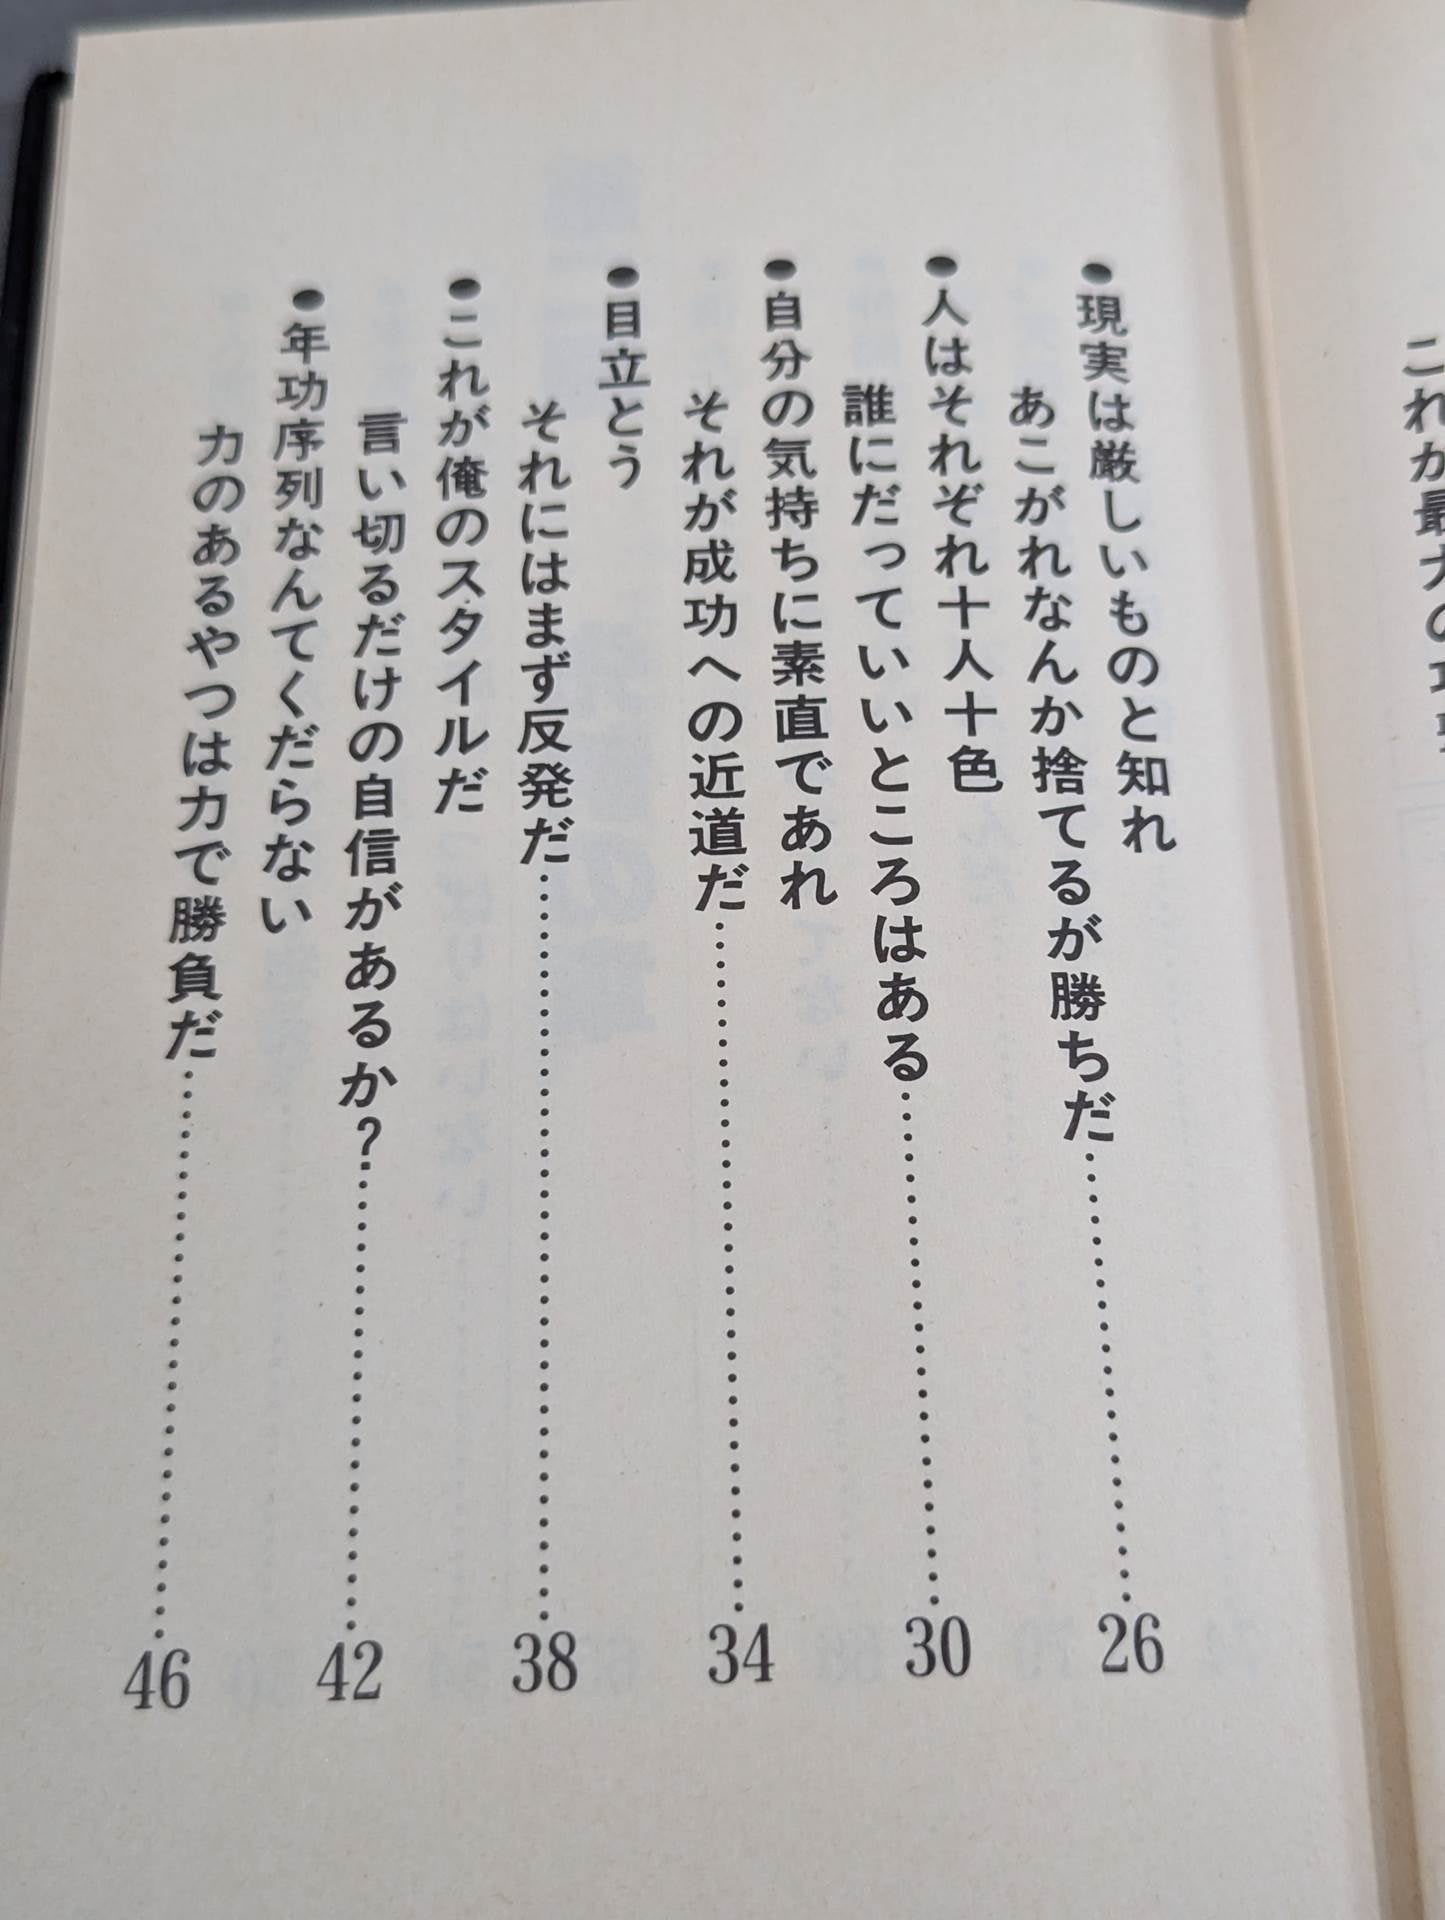 ●現実は厳しいものと知れ
あこがれなんか捨てるが勝ちだ……26
●人はそれぞれ十人十色
誰にだっていいところはある……30
●自分の気持ちに素直であれ
それが成功への近道だ……34
●目立とう
それにはまず反発だ……38
●これが俺のスタイルだ
言い切るだけの自信があるか?……42
●年功序列なんてくだらない
力のあるやつは力で勝負だ……46